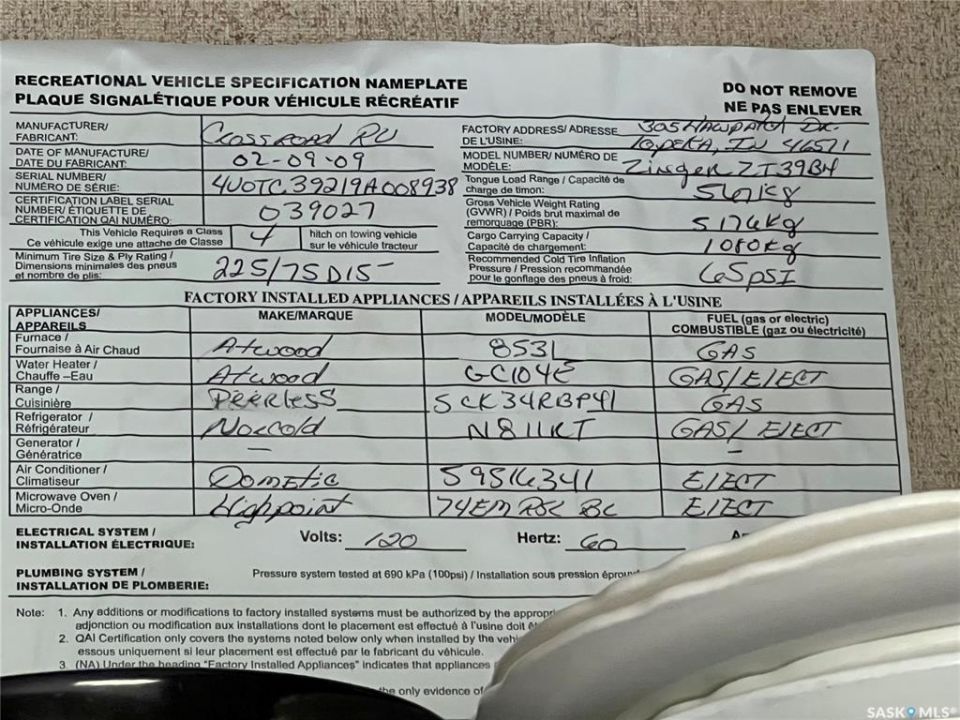 RECREATIONAL VEHICLE SPECIFICATION NAMEPLATE
PLAQUE SIGNALÉTIQUE POUR VÉHICULE RÉCRÉATIF
DO NOT REMOVE
NE PAS ENLEVER
MANUFACTURER/
FABRICANT: Crossroad RV
DATE OF MANUFACTURE/
DATE DU FABRICANT: 02-09-09
SERIAL NUMBER/
NUMÉRO DE SÉRIE: 4U0TC39219A008938
CERTIFICATION LABEL SERIAL
NUMBER/ ÉTIQUETTE DE
CERTIFICATION QAI NUMÉRO: 039027
This Vehicle Requires a Class
Ce véhicule exige une attache de Classe
4
hitch on towing vehicle
sur le véhicule tracteur
Minimum Tire Size & Ply Rating /
Dimensions minimales des pneus
et nombre de plis: 225/75D15
FACTORY ADDRESS/ ADRESSE
DE L'USINE: 305 Hawpatch Dr.
Topeka, IN 46571
MODEL NUMBER/ NUMÉRO DE
MODÈLE: Zinger ZT39BH
Tongue Load Range / Capacité de
charge de timon: 567kg
Gross Vehicle Weight Rating
(GVWR) / Poids brut maximal de
remorquage (PBR): 5174kg
Cargo Carrying Capacity /
Capacité de chargement: 1080kg
Recommended Cold Tire Inflation
Pressure / Pression recommandée
pour le gonflage des pneus à froid: 65psI
FACTORY INSTALLED APPLIANCES / APPAREILS INSTALLÉES À L'USINE
APPLIANCES/
APPAREILS
MAKE/MARQUE
MODEL/MODÈLE
FUEL (gas or electric)
COMBUSTIBLE (gaz ou électricité)
Furnace /
Fournaise à Air Chaud
Atwood
8531
GAS
Water Heater /
Chauffe –Eau
Atwood
GC104E
GAS/ElECT
Range /
Cuisinière
PEERLESS
SCK34RBP41
GAS
Refrigerator /
Réfrigérateur
Norcold
N811RT
GAS/ ElECT
Generator /
Génératrice
—
–
Air Conditioner /
Climatiseur
Dometic
59516341
ElECT
Microwave Oven /
Micro-Onde
Highpoint
ElECT
ELECTRICAL SYSTEM /
INSTALLATION ÉLECTRIQUE:
Volts: 120
Hertz: 60
PLUMBING SYSTEM /
INSTALLATION DE PLOMBERIE:
Pressure system tested at 690 kPa (100psi) / Installation sous pression
Note: 1. Any additions or modifications to factory installed systems must be authorized by the
adjonction ou modification aux installations dont le placement est effectué à l'usine doit
2. QAI Certification only covers the systems noted below only when installed by the
essous uniquement si leur placement est effectué par le fabricant du véhicule.
3. (NA) Under the heading "Factory Installed Appliances" indicates that appliances
the only evidence of
SASK MLS®